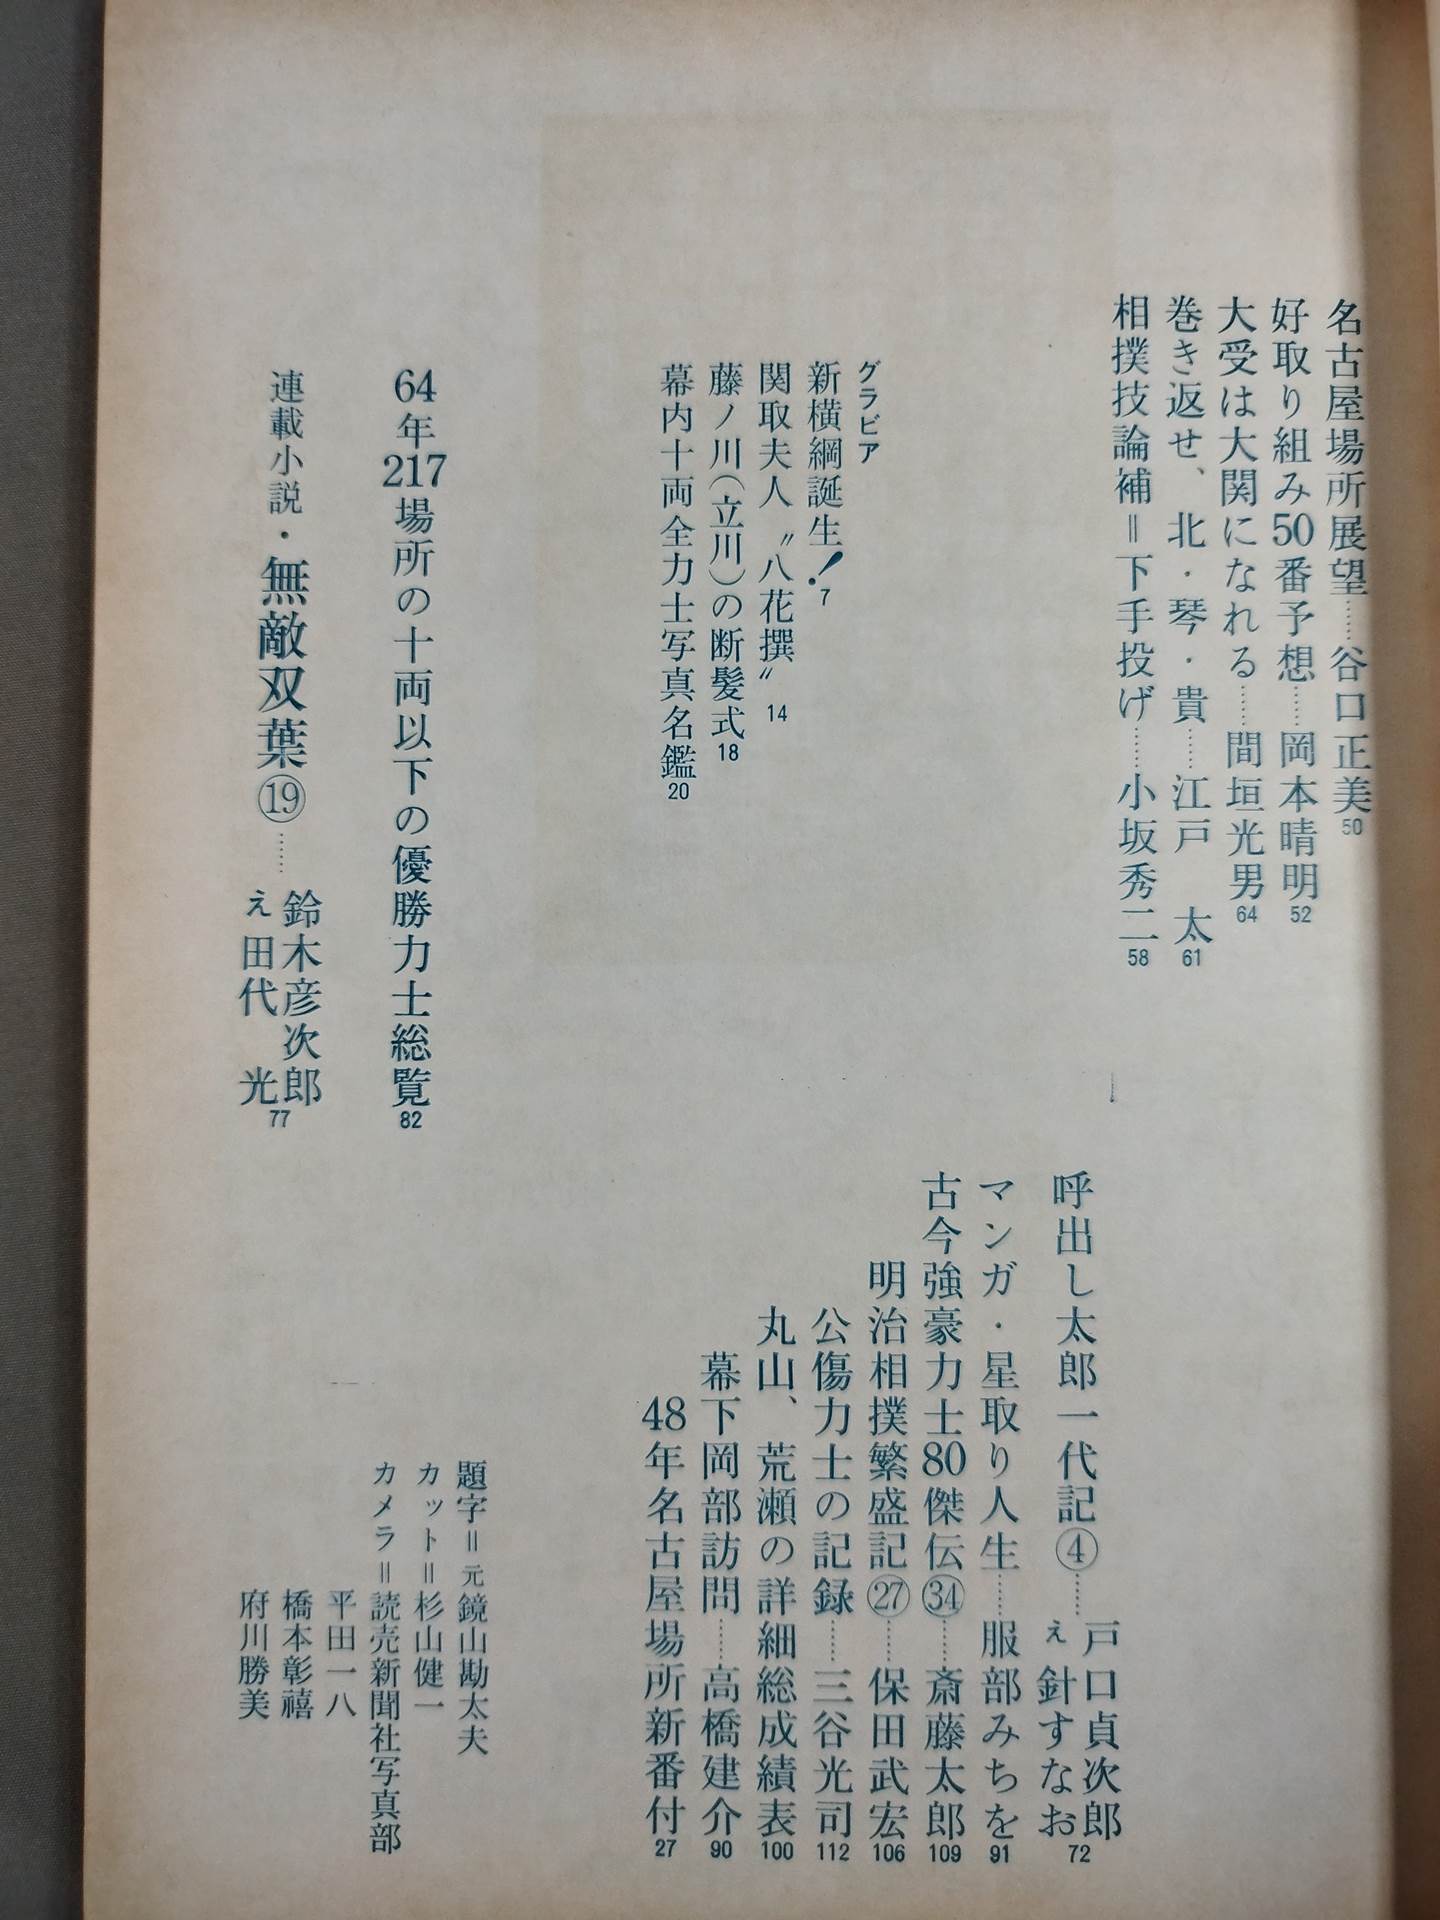 名古屋場所展望……谷口正美50
好取り組み50番予想……岡本晴明52
大受は大関になれる……間垣光男64
巻き返せ、北・琴・貴……江戸 太61
相撲技論補＝下手投げ……小坂秀二58
グラビア
新横綱誕生！7
関取夫人〝八花撰〟14
藤ノ川（立川）の断髪式18
幕内十両全力士写真名鑑20
64年217場所の十両以下の優勝力士総覧82
連載小説・無敵双葉⑲……鈴木彦次郎
え 田代 光77
呼出し太郎一代記④……戸口貞次郎
え 針すなお72
マンガ・星取り人生……服部みちを91
古今強豪力士80傑伝㉞……斎藤太郎109
明治相撲繁盛記㉗……保田武宏106
公傷力士の記録……三谷光司112
丸山、荒瀬の詳細総成績表100
幕下岡部訪問……高橋建介90
48年名古屋場所新番付27
題字＝元鏡山勘太夫
カット＝杉山健一
カメラ＝読売新聞社写真部
平田一八
橋本彰禧
府川勝美